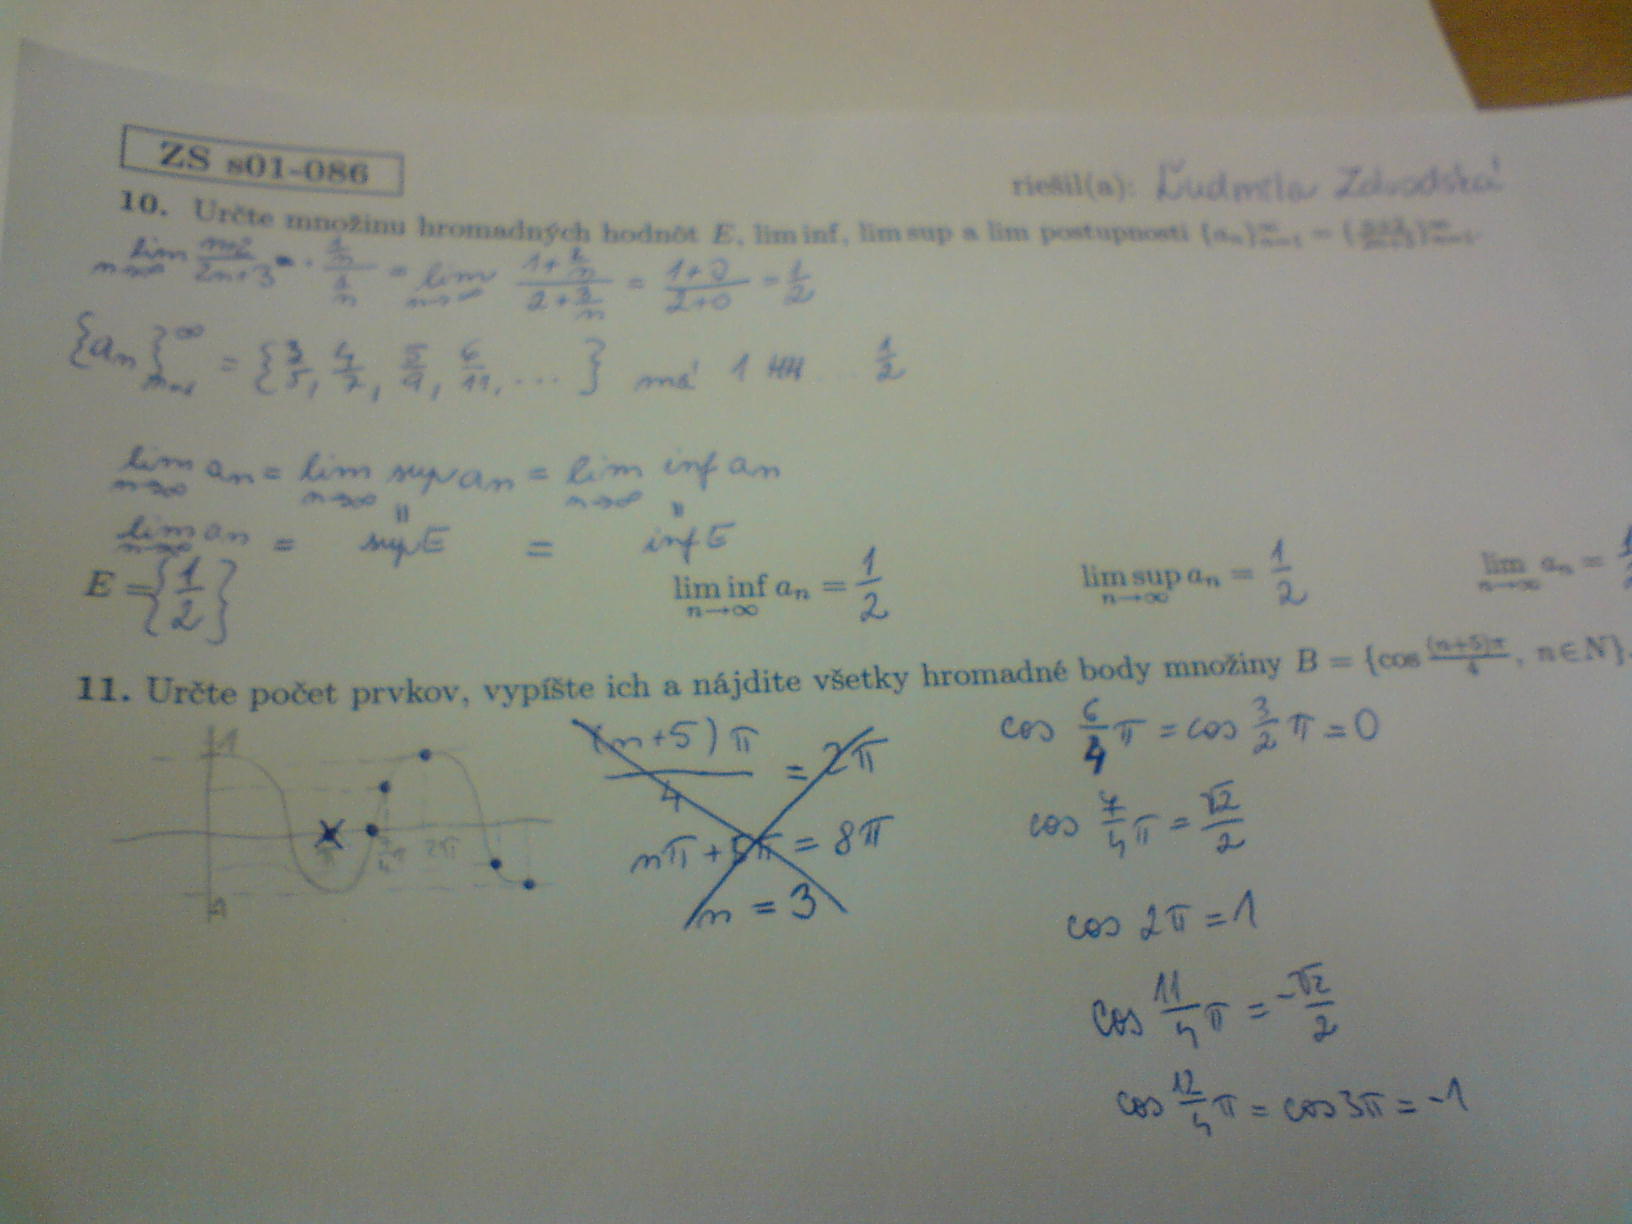 ZS s01-086
riešil(a): Ľudmila
10. Určte množinu hromadných hodnôt E, lim inf, lim sup a lim postupnosti {aₙ}ₙ₌₁^∞ = {(n+2)/(2n+3)}ₙ₌₁^∞.
lim n→∞ (n+2)/(2n+3) = · (1/n)/(1/n) = lim n→∞ (1+2/n)/(2+3/n) = (1+0)/(2+0) = 1/2
{aₙ}ₙ₌₁^∞ = {3/5, 4/7, 5/9, 6/11, ... } má 1 HH ... 1/2
lim n→∞ aₙ = lim n→∞ sup aₙ = lim n→∞ inf aₙ
= =
lim n→∞ aₙ = sup E = inf E
E = {1/2} lim inf n→∞ aₙ = 1/2 lim sup n→∞ aₙ = 1/2 lim n→∞ aₙ = 1/2
11. Určte počet prvkov, vypíšte ich a nájdite všetky hromadné body množiny B = {cos (n+5)π/4, n∈N}.
1
π 7/4π 2π
-1
(n+5)π/4 = 2π
nπ + 5π = 8π
n = 3
cos 6/4 π = cos 3/2 π = 0
cos 7/4 π = √2/2
cos 2π = 1
cos 11/4 π = -√2/2
cos 12/4 π = cos 3π = -1